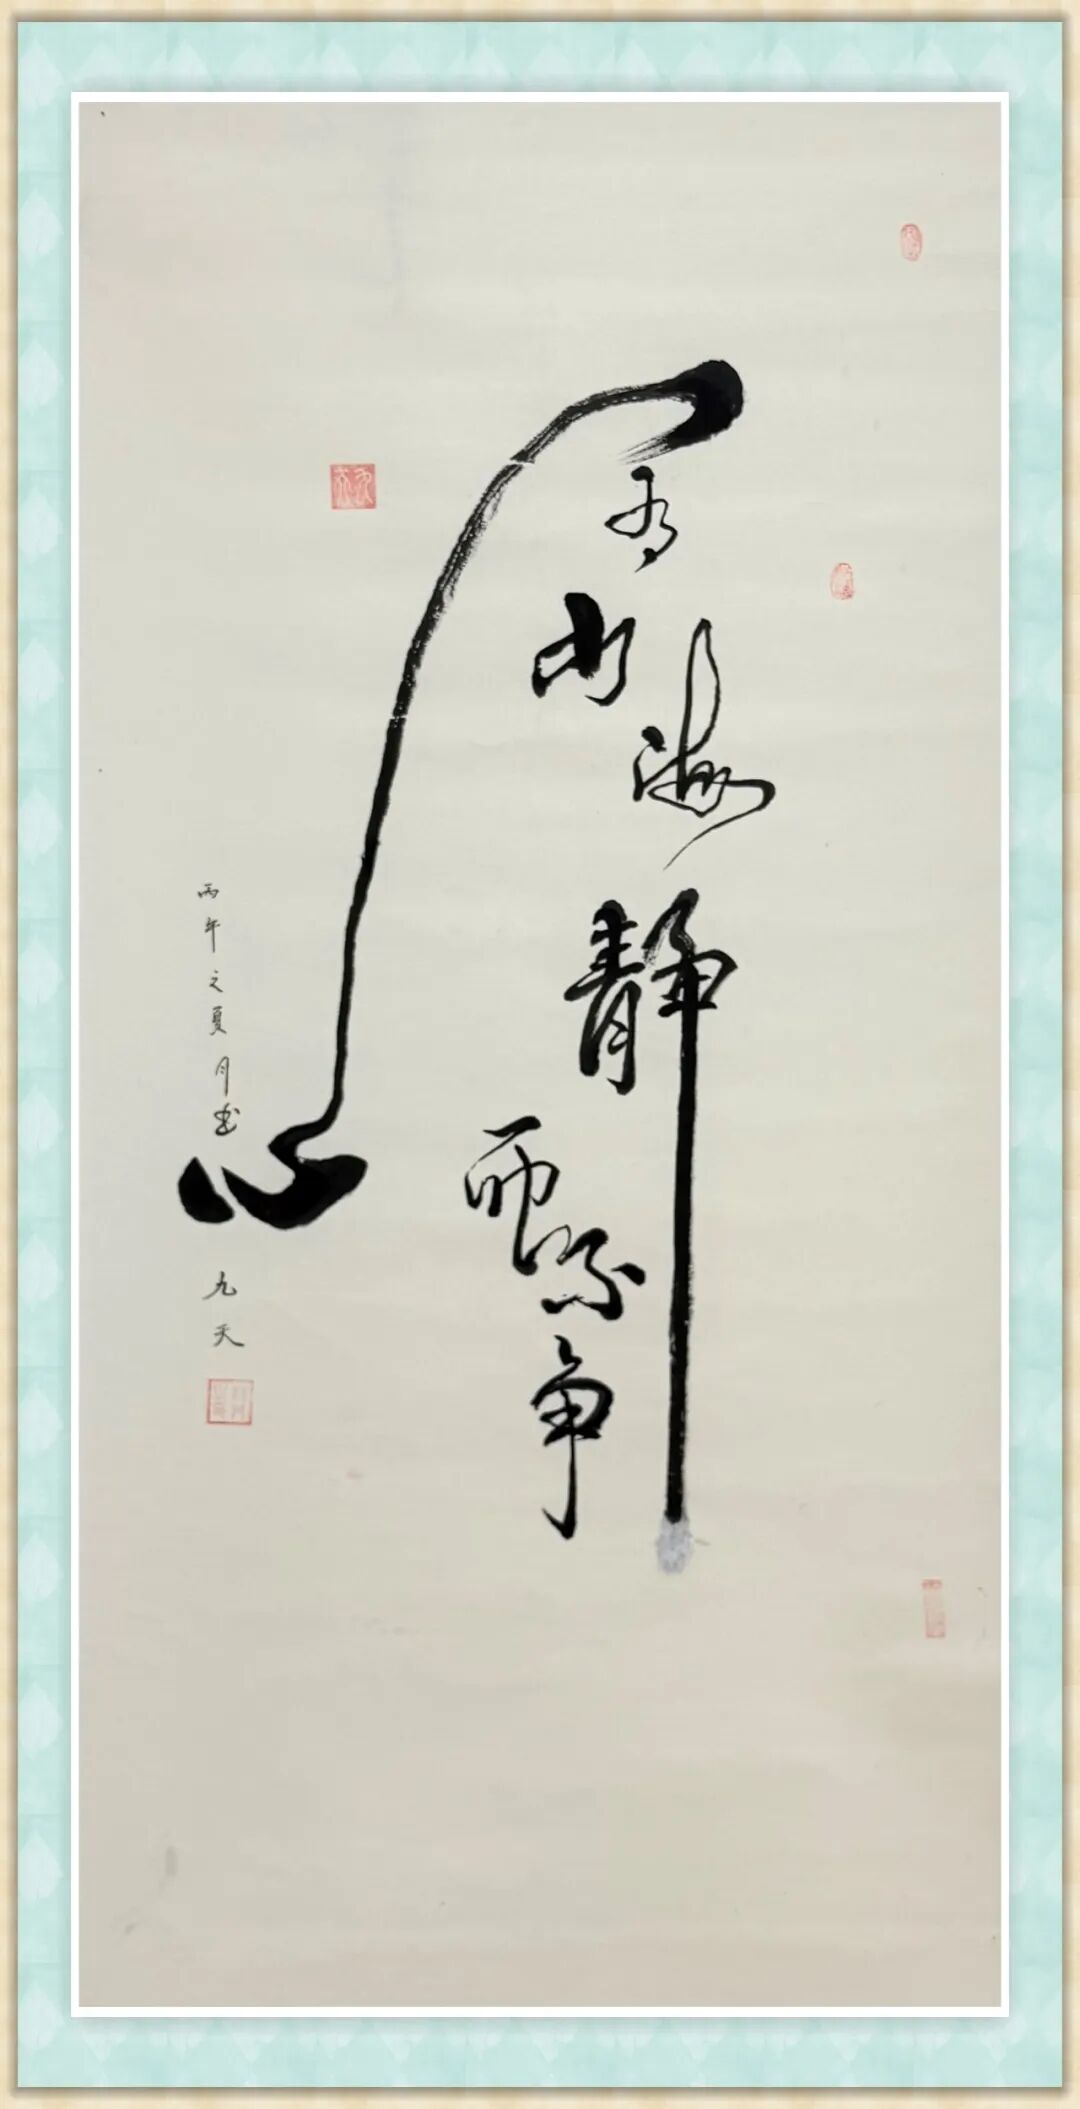 心有山海
静而不争
丙午之夏月书
九天